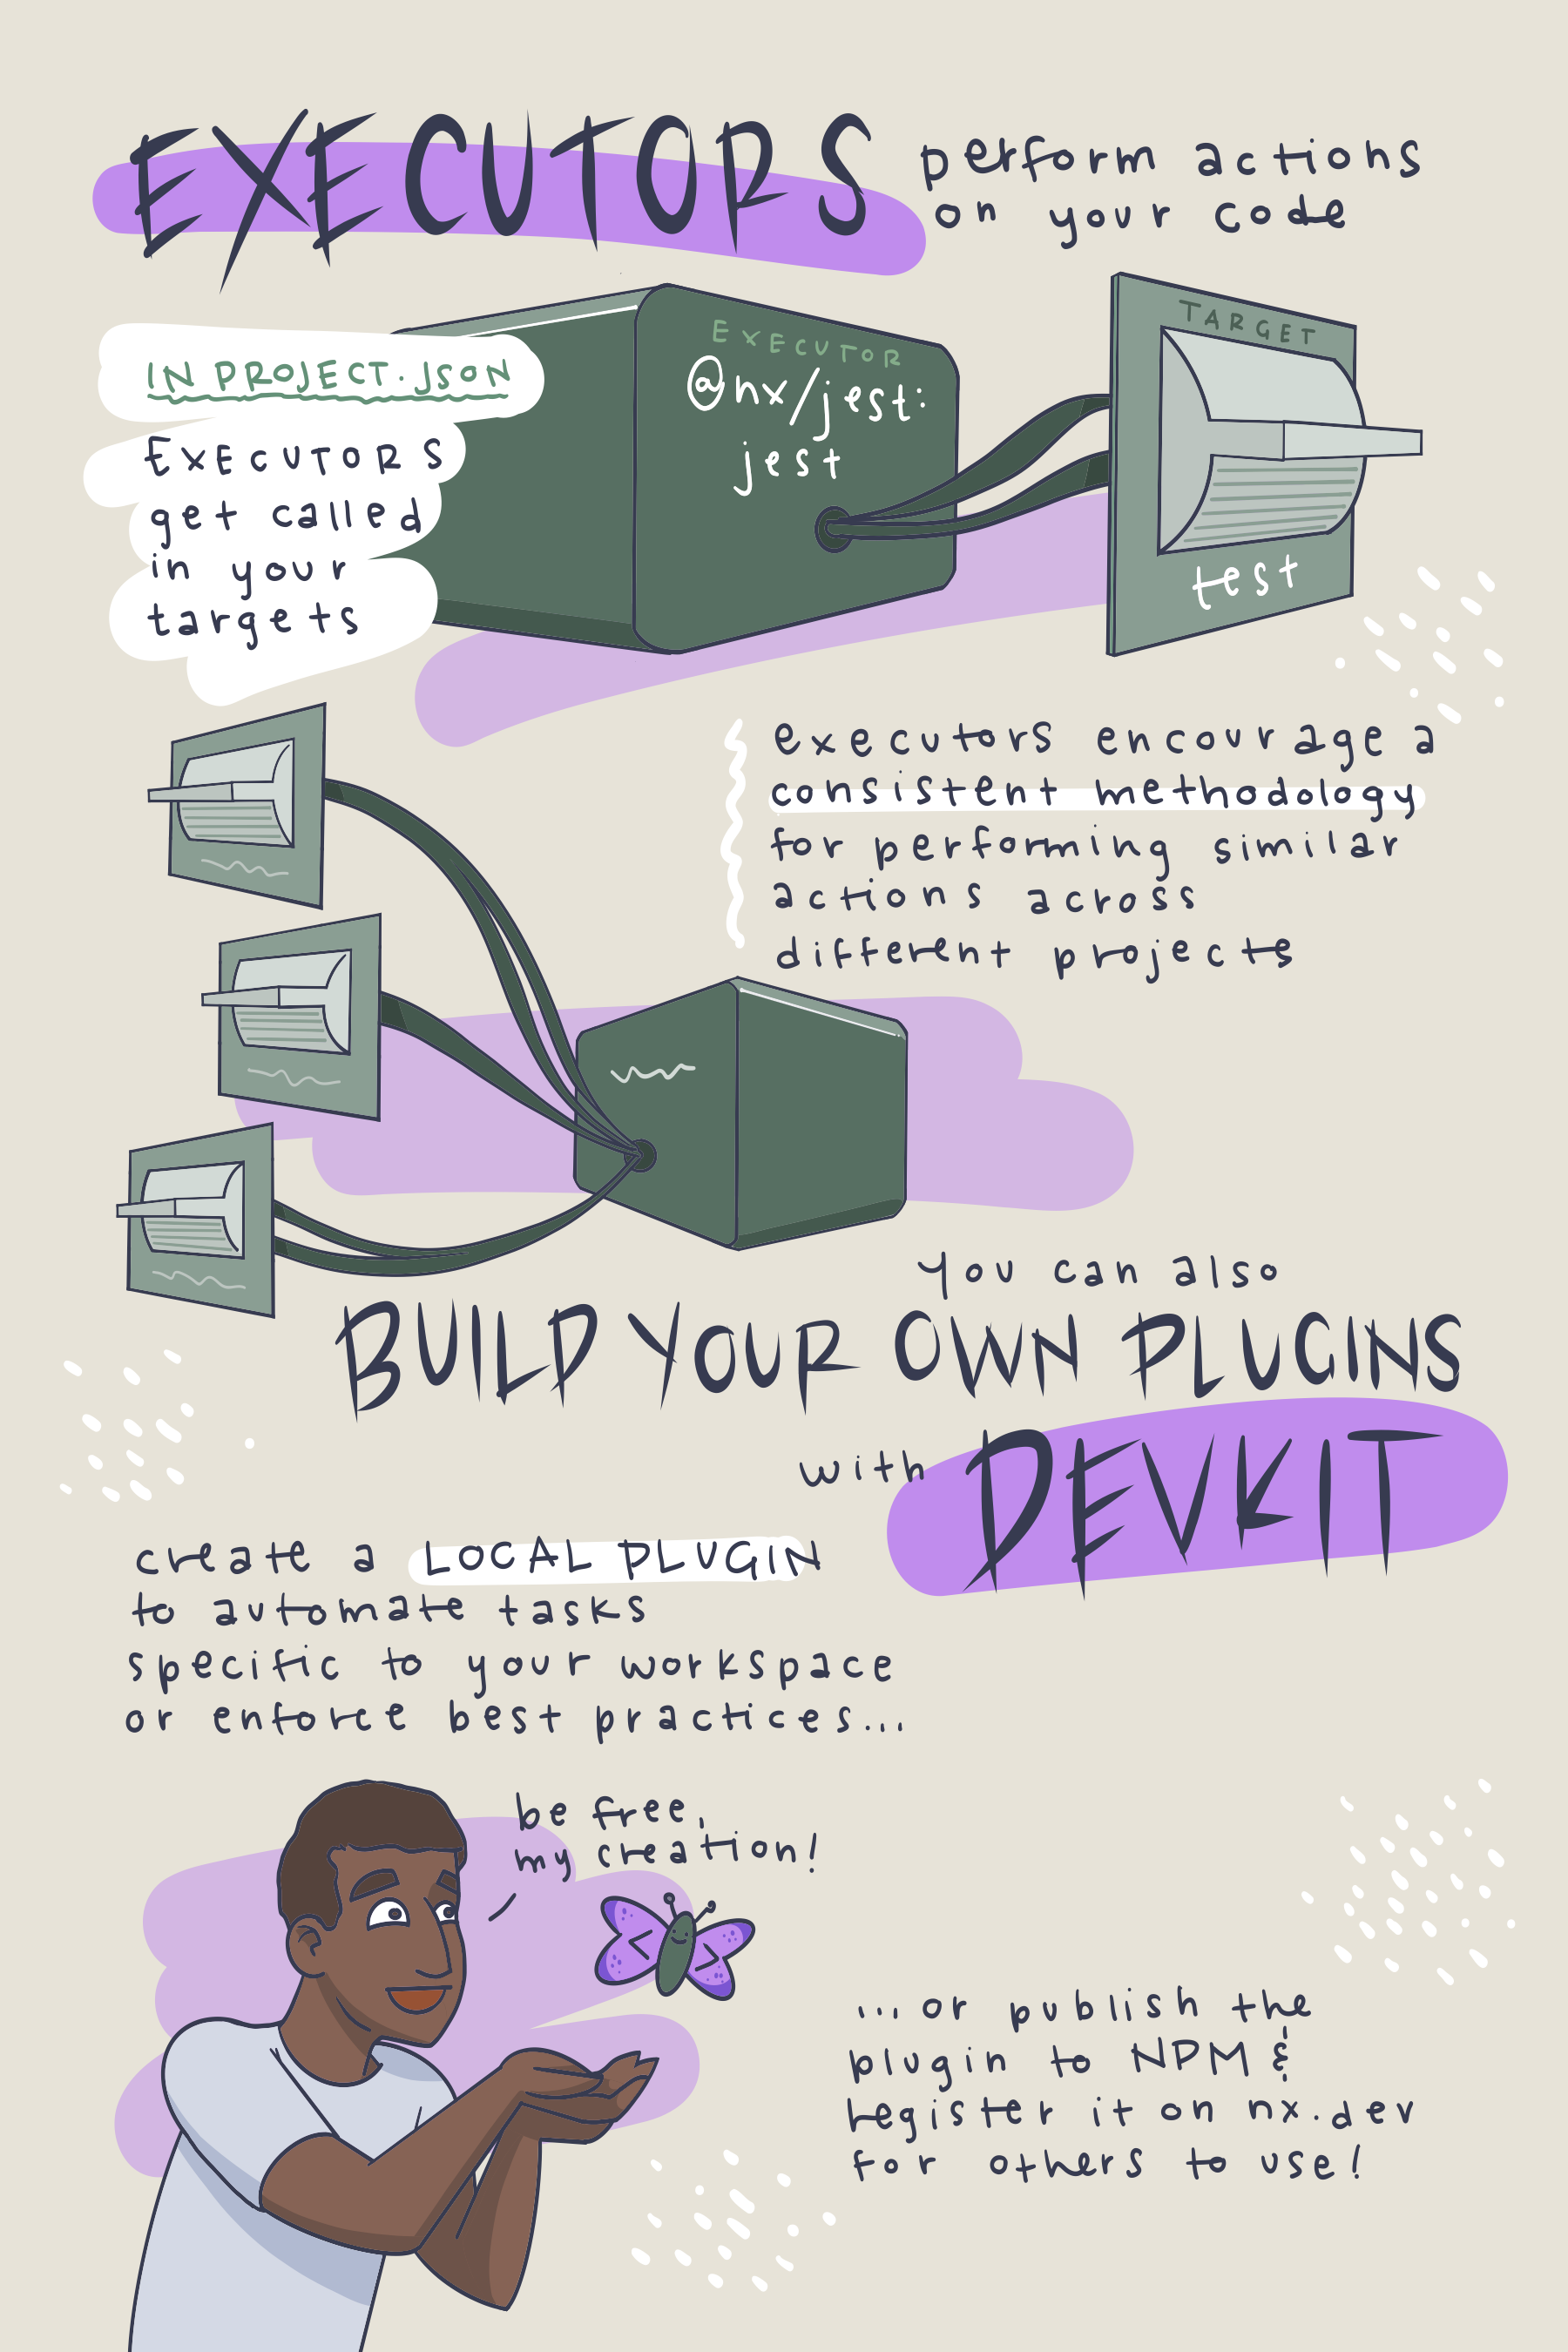 EXECUTORS perform actions
on your code
IN PROJECT.JSON
EXECUTORS
get called
in your
targets
EXECUTOR
@nx/jest:
jest
TARGET
test
executors encourage a
consistent methodology
for performing similar
actions across
different projects
you can also
BUILD YOUR OWN PLUGINS
with DEVKIT
create a LOCAL PLUGIN
to automate tasks
specific to your workspace
or enforce best practices...
be free,
my creation!
< >
...or publish the
plugin to NPM &
register it on nx.dev
for others to use!